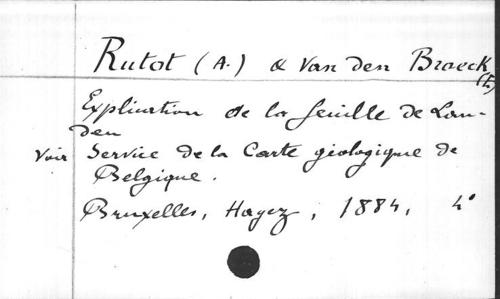 Rutot (A.) & Van den Broeck
(E)
Explication de la feuille de Lan-
den
Voir Service de la Carte géologique de
Belgique.
Bruxelles, Hayez, 1884, 4°